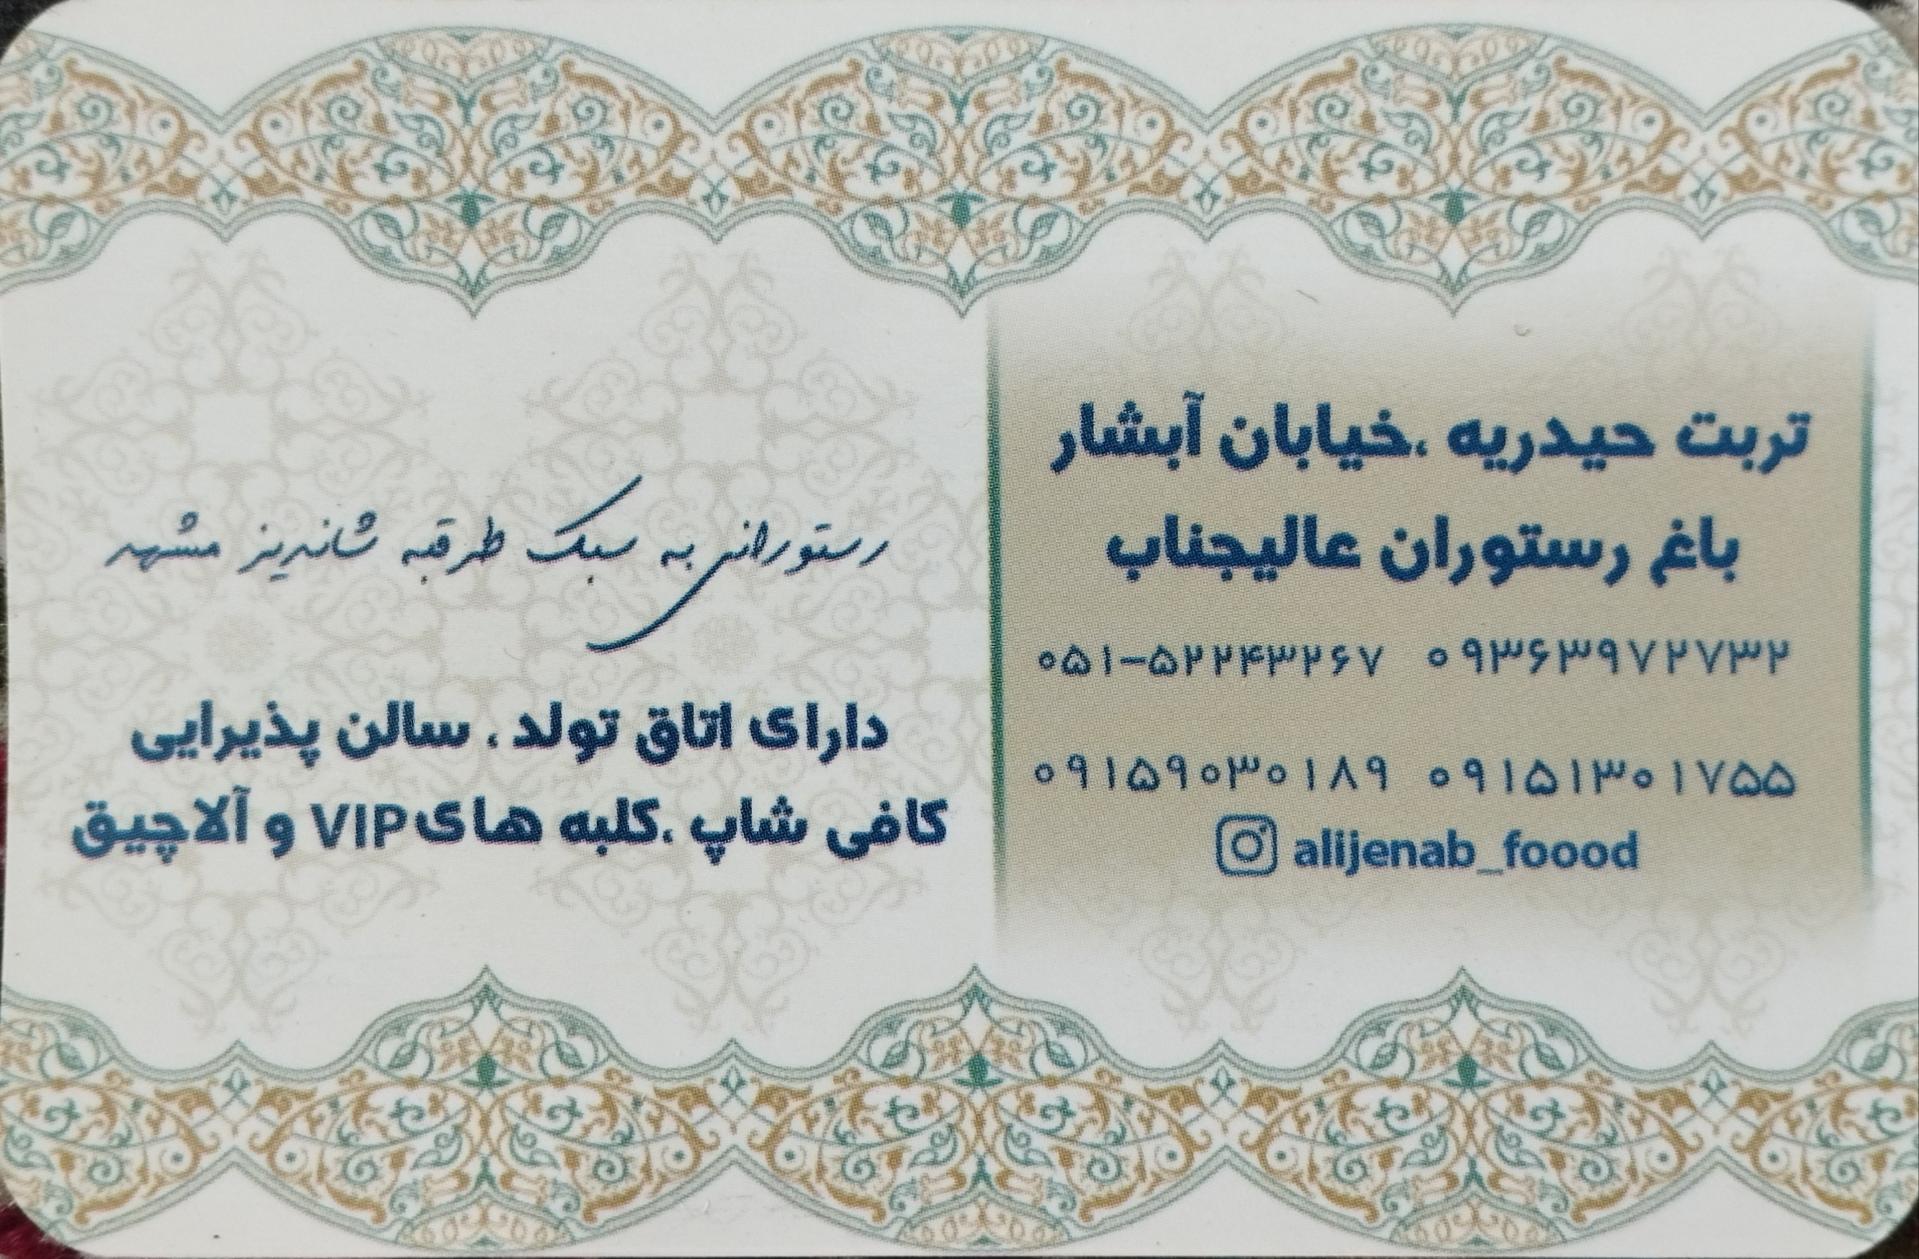 تربت حیدریه ،خیابان آبشار
باغ رستوران عالیجناب
۰۵۱-۵۲۲۴۳۲۶۷ ۰۹۳۶۳۹۷۲۷۳۲
۰۹۱۵۹۰۳۰۱۸۹ ۰۹۱۵۱۳۰۱۷۵۵
alijenab_foood
رستورانی به سبک طرقبه شاندیز مشهد
دارای اتاق تولد ، سالن پذیرایی
کافی شاپ ،کلبه های VIP و آلاچیق